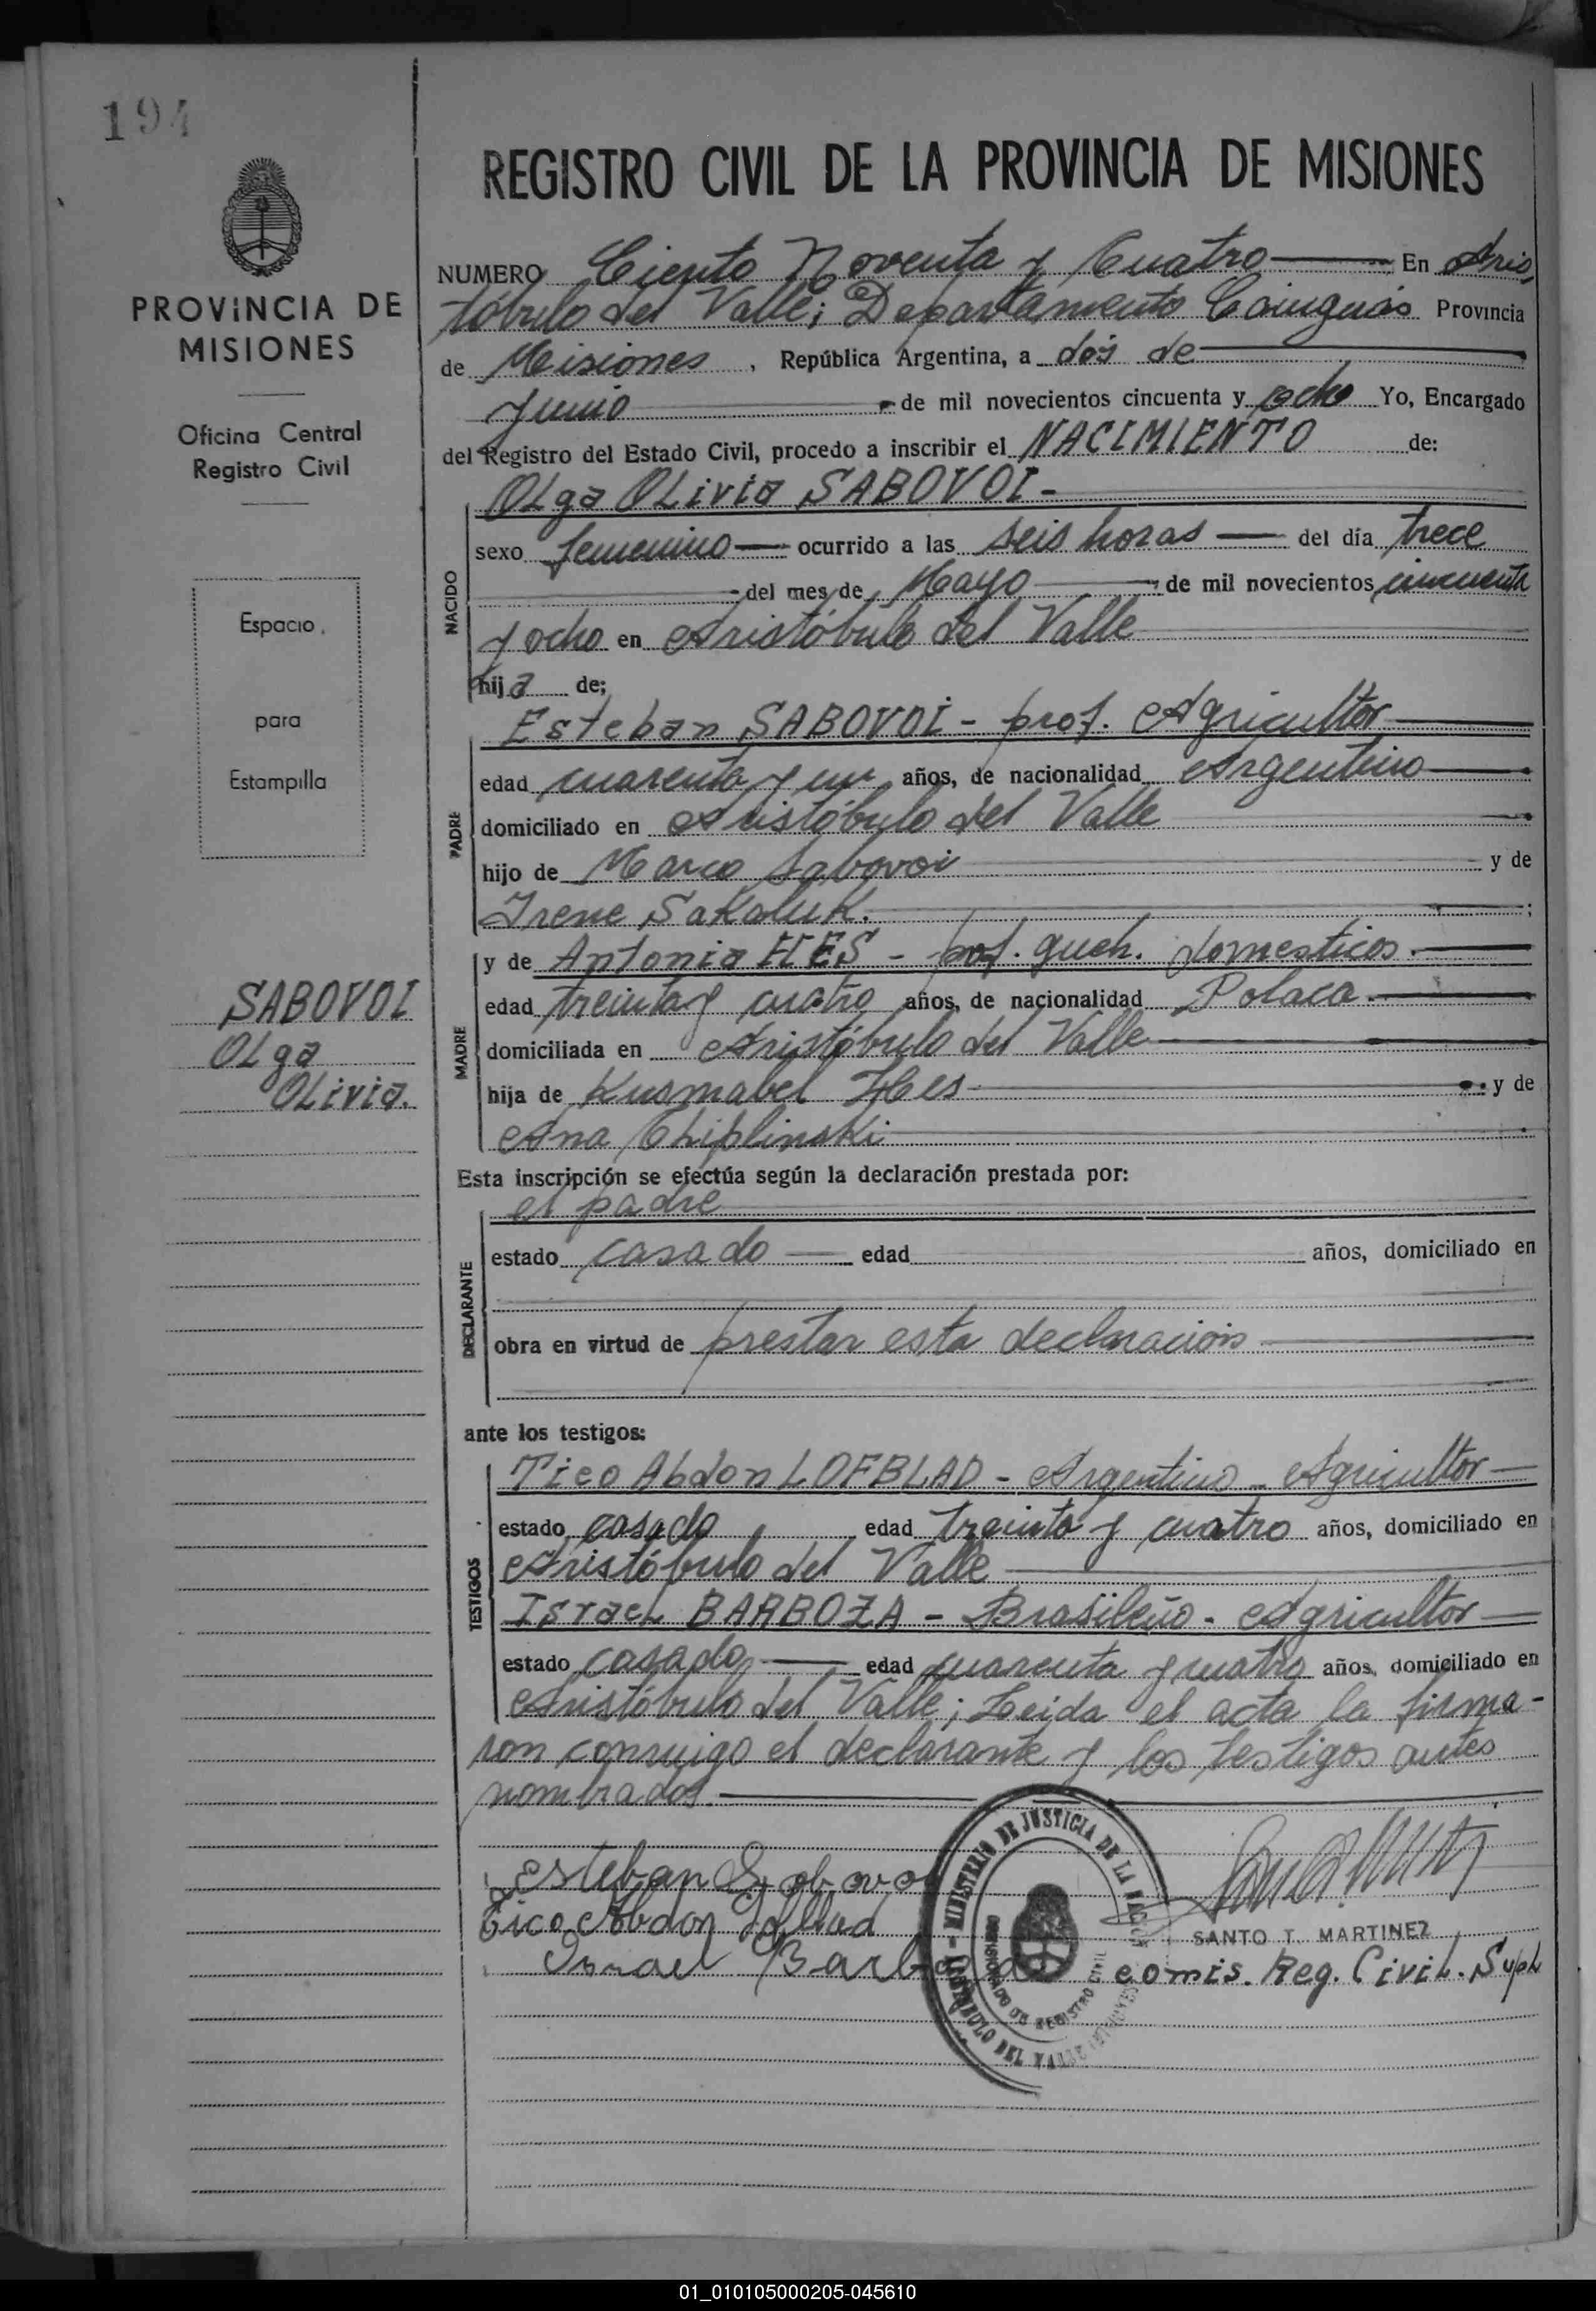 194
PROVINCIA DE
MISIONES
Oficina Central
Registro Civil
Espacio
para
Estampilla
SABOVOI
Olga
Olivia.
REGISTRO CIVIL DE LA PROVINCIA DE MISIONES
NUMERO Ciento Noventa y Cuatro En Aris
tóbulo del Valle; Departamento Cainguás Provincia
de Misiones, República Argentina, a dos de
Junio de mil novecientos cincuenta y ocho Yo, Encargado
del Registro del Estado Civil, procedo a inscribir el NACIMIENTO de:
Olga Olivia SABOVOI-
NACIDO
sexo femenino ocurrido a las seis horas del día trece
del mes de Mayo de mil novecientos cincuenta
y ocho en Aristóbulo del Valle
hija de;
Esteban SABOVOI - prof. Agricultor
PADRE
edad cuarenta y un años, de nacionalidad Argentino
domiciliado en Aristóbulo del Valle
hijo de Marco Sabovoi y de
Irene Sakaluk.
y de Antonia HES - prof. queh. domesticos.
MADRE
edad treinta y cuatro años, de nacionalidad Polaca.
domiciliada en Aristóbulo del Valle
hija de Kusmabel Hes y de
Ana Chiplinski
Esta inscripción se efectúa según la declaración prestada por:
el padre
DECLARANTE
estado casado edad años, domiciliado en
obra en virtud de prestar esta declaración
ante los testigos:
Tico Abdon LOFBLAD - Argentino - Agricultor
TESTIGOS
estado casado edad treinta y cuatro años, domiciliado en
Aristóbulo del Valle
Israel BARBOZA - Brasileño - Agricultor
estado casado edad cuarenta y cuatro años, domiciliado en
Aristóbulo del Valle; Leida el acta la firma-
ron conmigo el declarante y los testigos antes
nombrados.
Esteban Sabovoi
Tico Abdon Lofblad
Israel Barboza
MINISTERIO DE JUSTICIA DE LA NACION
ARISTOBULO DEL VALLE
REGISTRO CIVIL
SANTO T. MARTINEZ
comis. Reg. Civil. Supl
01_010105000205-045610